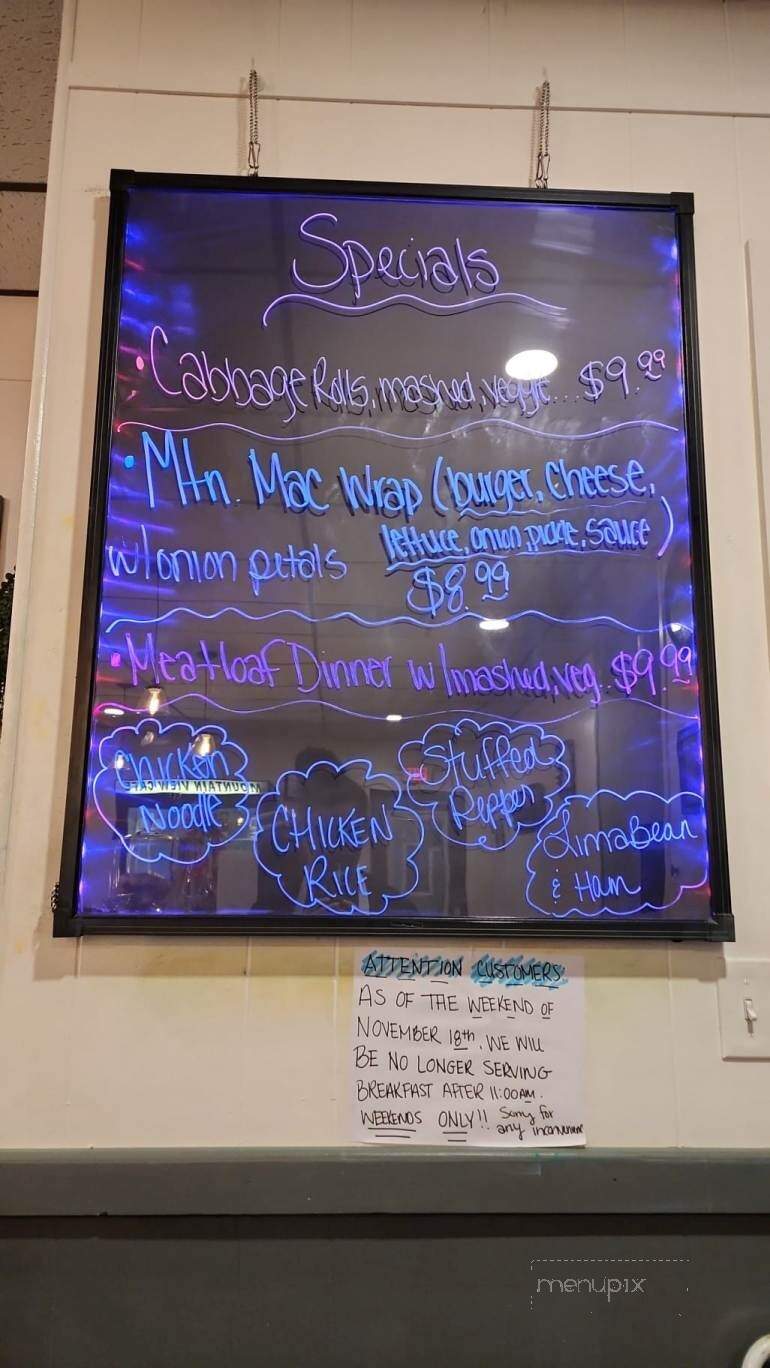 Specials
• Cabbage Rolls, mashed, veggie... $9.99
• Mtn. Mac Wrap (burger, cheese,
lettuce, onion, pickle, sauce)
w/onion petals
$8.99
• Meatloaf Dinner w/mashed, veg. $9.99
Chicken
Noodle
CHICKEN
RICE
Stuffed
Pepper
LimaBean
& Ham
MOUNTAIN VIEW CAFE
ATTENTION CUSTOMERS
AS OF THE WEEKEND OF
NOVEMBER 18th, WE WILL
BE NO LONGER SERVING
BREAKFAST AFTER 11:00AM.
WEEKENDS ONLY!! Sorry for
any inconvenience
menupix